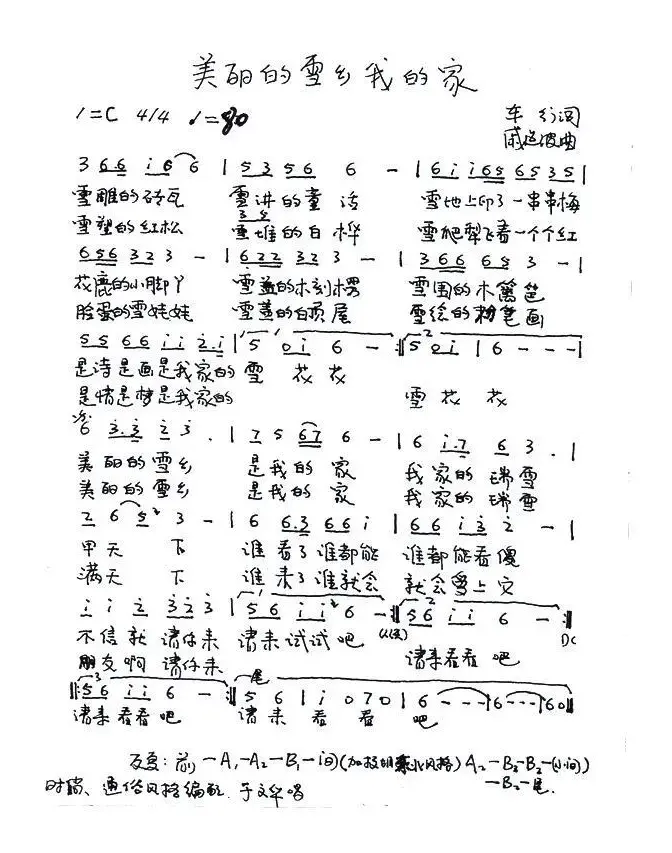 美丽的雪乡我的家
1=C 4/4 ♩=80
车行词
戚建波曲
3 6 6 i 6 6 | 5 3 5 6 6 - | 6 i i 6 5 6 5 3 5 |
雪雕的砖瓦 雪讲的童话 雪地上印了一串串梅
雪塑的红松 雪堆的白桦 雪爬犁飞着一个个红
6 5 6 3 2 3 - | 6 2 2 3 2 3 - | 3 6 6 6 5 3 - |
花鹿的小脚丫 雪盖的木刻楞 雪围的木篱笆
脸蛋的雪娃娃 雪盖的 雪绘的粉笔画
5 5 6 6 i i 2. i | 5 0 i 6 - :‖ 5 0 i | 6 - - - |
是诗是画是我家的雪 花 花
是情是梦是我家的 雪 花 花
6 3. 3 2 3 . | 7 5 6 7 6 - | 6 i. 7 6 3 . |
美丽的雪乡 是我的家 我家的瑞雪
美丽的雪乡 是我的家 我家的瑞雪
2 6 5 3 - | 6 6. 3 6 6 i | 6 6 i 3 2 - |
甲天 下 谁看了谁都能 谁都能看傻
满天 下 谁来了谁就会 就会爱上它
i i 2 3 2 3 | 5 6 i i 6 - :‖ 5 6 i i 6 - :‖
不信就请你来 请来试试吧 请来看看吧 DC
朋友啊 请你来
‖: 5 6 i i 6 - :‖ 尾 5 6 | i i 0 7 0 | 6 - - - | 6 - - - | 6 0 0 ‖
请来看看吧 请来看看吧
反复：前—A₁—A₂—B₁—间(加 东北风格) A₂—B₂—B₂—(小间)
—B₂—尾.
时尚、通俗风格编配. 于文华唱